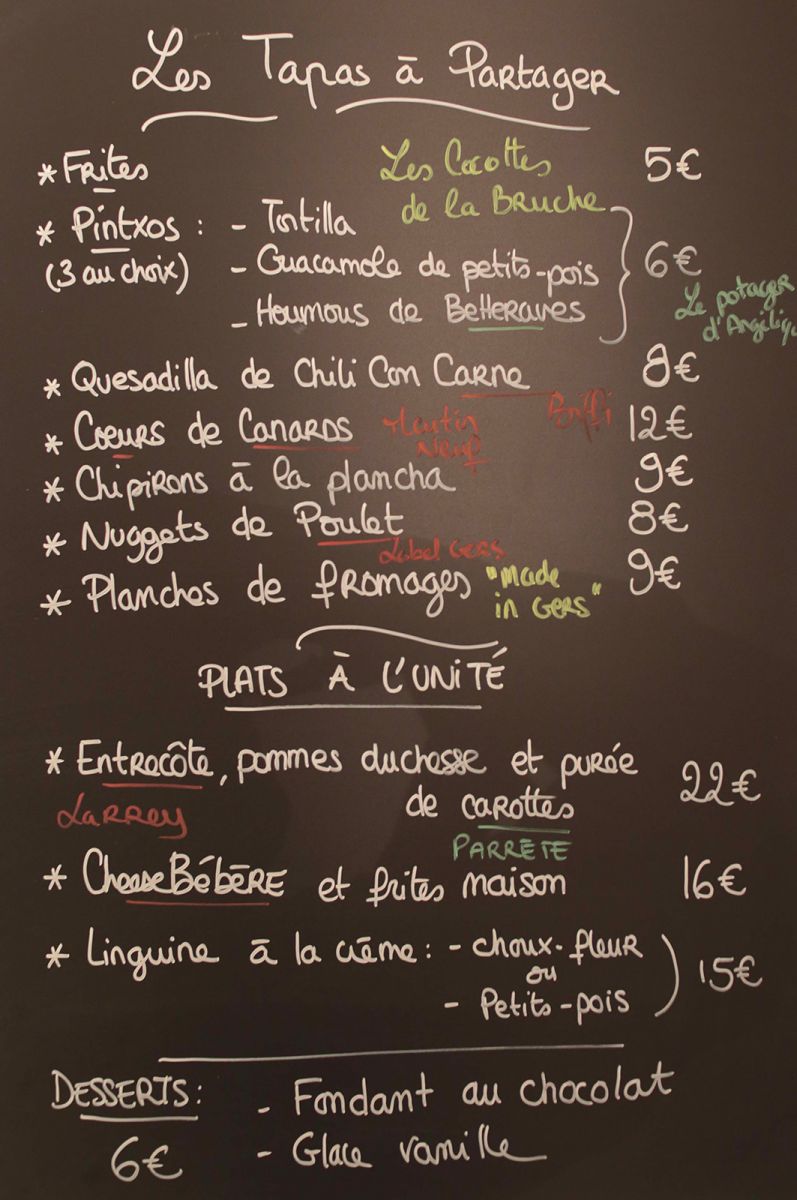 Les Tapas à Partager
* Frites 5€
Les Cocottes
de la Bruche
* Pintxos : - Tortilla
(3 au choix) - Guacamole de petits-pois 6€
- Houmous de Betteraves
Le potager
d'Angéliq
* Quesadilla de Chili Con Carne 8€
* Coeurs de Canards 12€
Neuf
* Chipirons à la plancha 9€
* Nuggets de Poulet 8€
Label Gers
* Planches de fromages "Made 9€
in Gers"
PLATS À L'UNITÉ
* Entrecôte, pommes duchesse et purée 22€
Larrey de carottes
PARRETE
* Cheese Bébère et frites maison 16€
* Linguine à la crème : - choux-fleur 15€
ou
- Petits-pois
DESSERTS : - Fondant au chocolat
6€ - Glace vanille